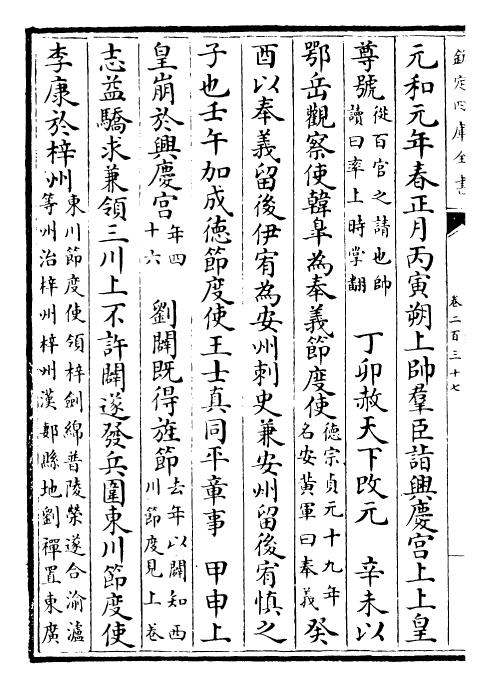 欽定四庫全書
卷二百三十七
元和元年春正月丙寅朔上帥羣臣詣興慶宫上上皇
尊號從百官之請也帥讀曰率上時掌翻 丁卯赦天下改元 辛未以
鄂岳觀察使韓臯為奉義節度使德宗貞元十九年名安黄軍曰奉義 癸
酉以奉義留後伊宥為安州刺史兼安州留後宥慎之
子也壬午加成德節度使王士真同平章事 甲申上
皇崩於興慶宫年四十六 劉闢既得旌節去年以闢知西川節度見上卷
志益驕求兼領三川上不許闢遂發兵圍東川節度使
李康於梓州東川節度使領梓劍綿普陵榮遂合渝瀘等州治梓州梓州漢郪縣地劉禪置東廣